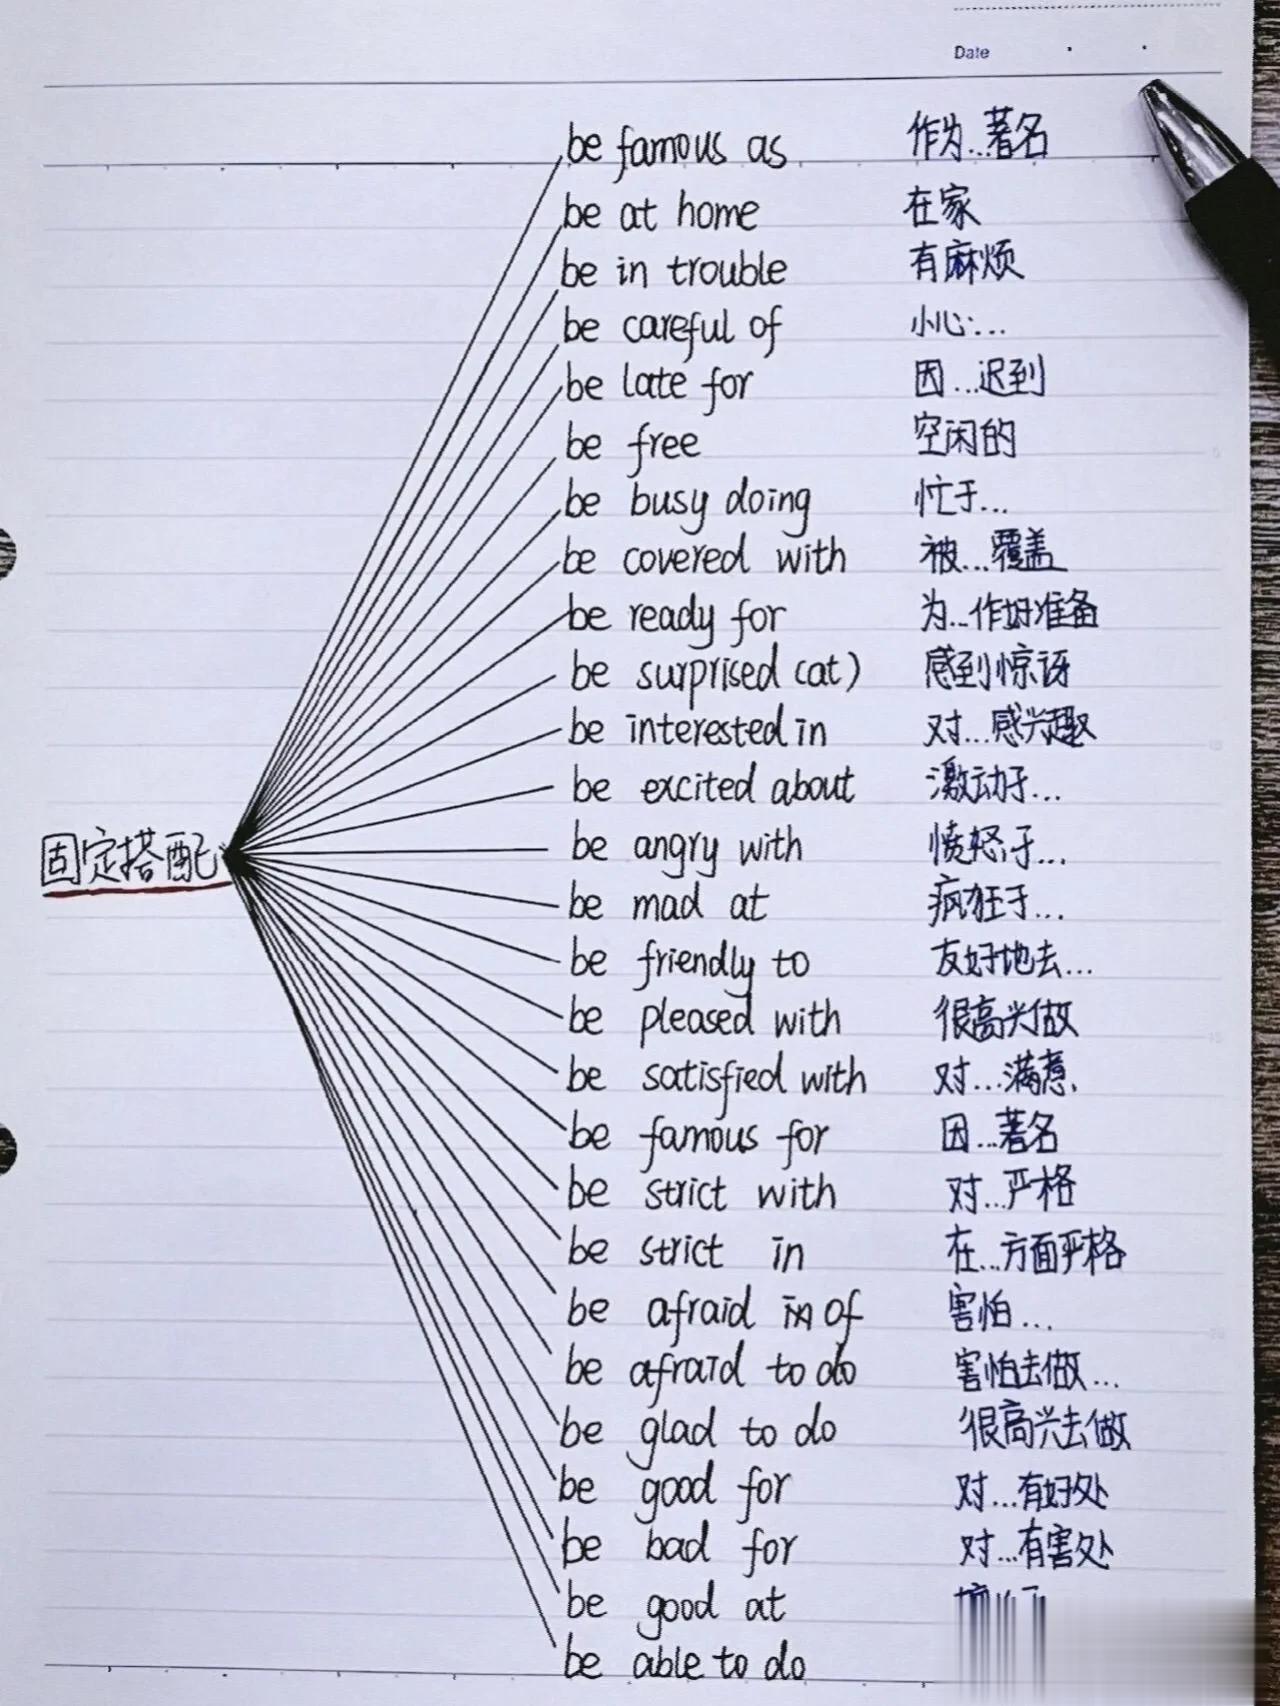 Date
be famous as 作为...著名
be at home 在家
be in trouble 有麻烦
be careful of 小心...
be late for 因...迟到
be free 空闲的
be busy doing 忙于...
be covered with 被...覆盖
be ready for 为...作好准备
be surprised (at) 感到惊讶
be interested in 对...感兴趣
be excited about 激动于...
固定搭配
be angry with 愤怒于...
be mad at 疯狂于...
be friendly to 友好地去...
be pleased with 很高兴做
be satisfied with 对...满意
be famous for 因...著名
be strict with 对...严格
be strict in 在...方面严格
be afraid of 害怕...
be afraid to do 害怕去做...
be glad to do 很高兴去做
be good for 对...有好处
be bad for 对...有害处
be good at
be able to do